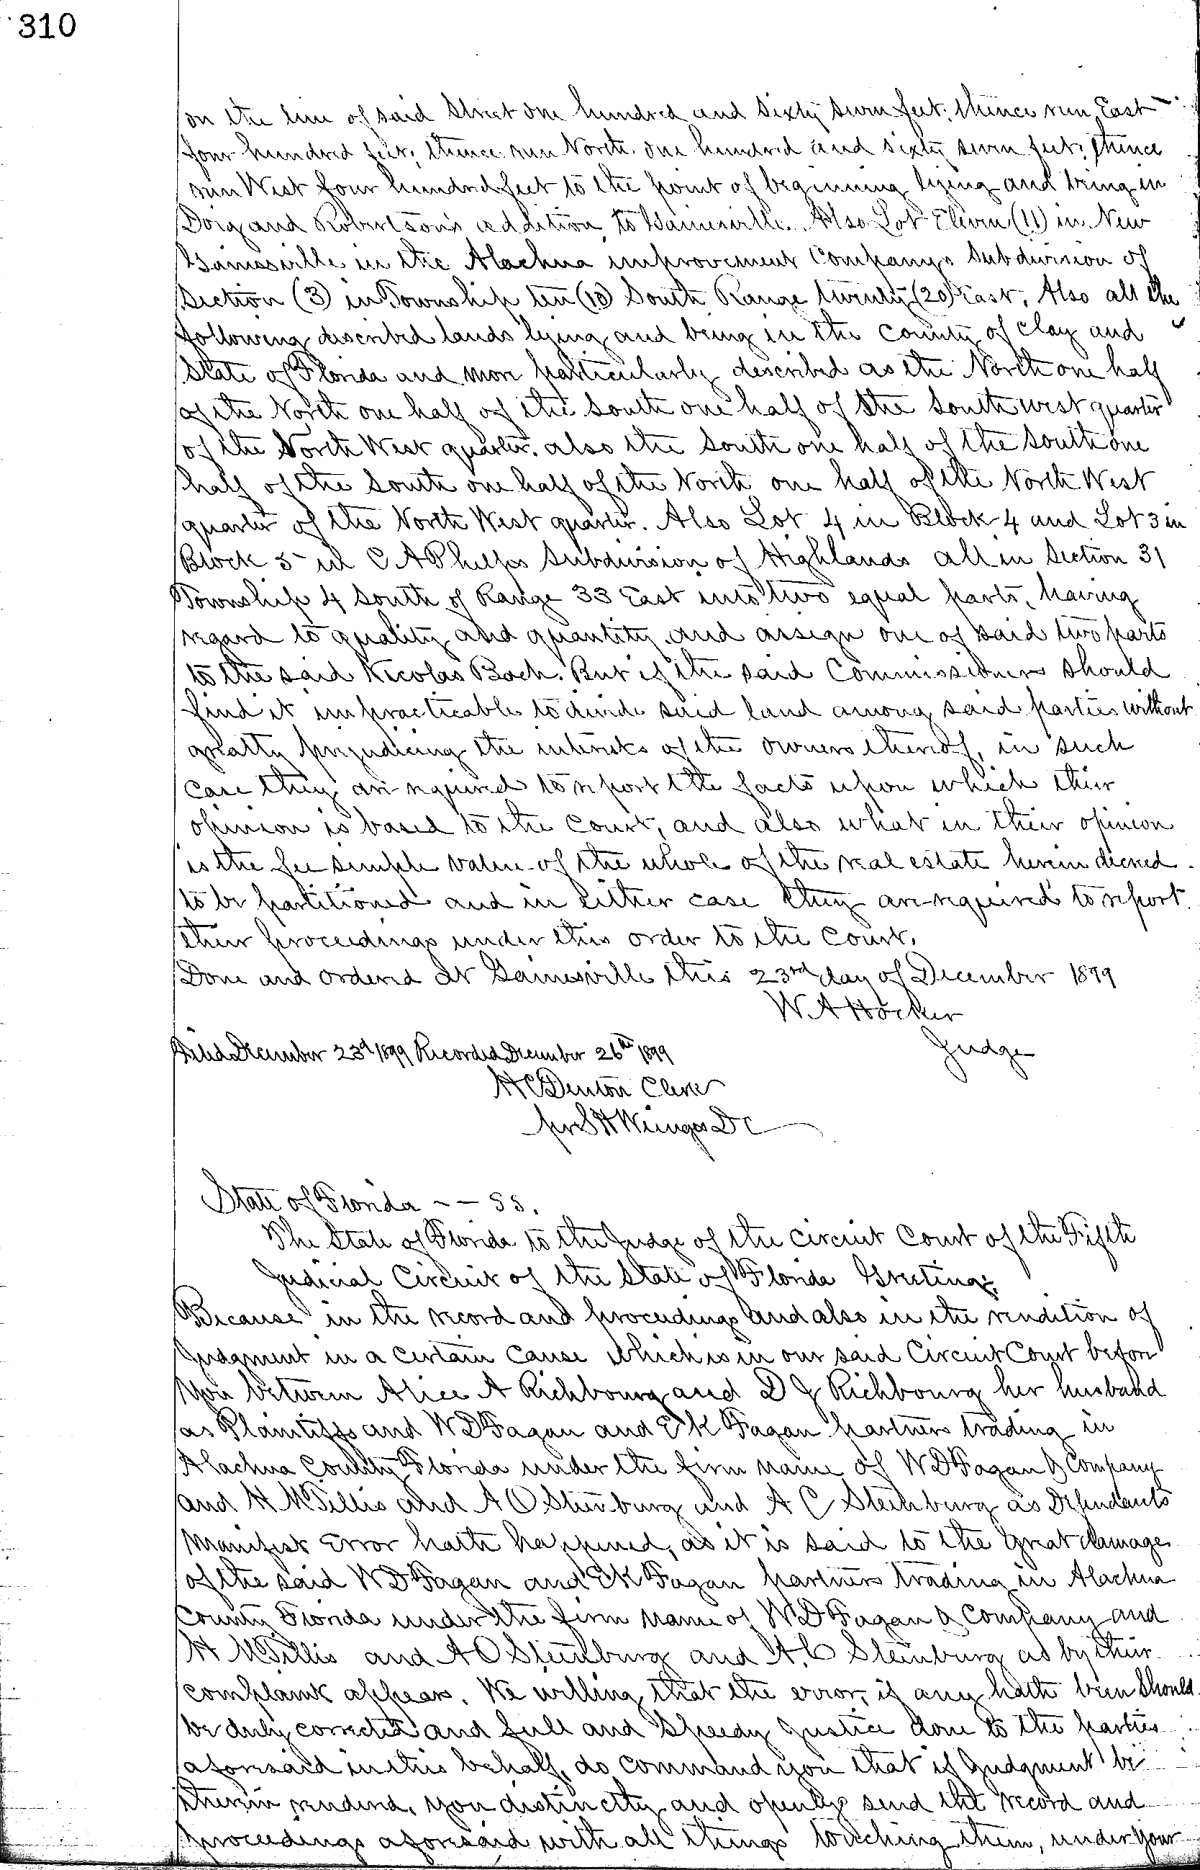 310
on the line of said Street one hundred and sixty seven feet, thence run East
four hundred feet, thence run North one hundred and sixty seven feet, thence
run West four hundred feet to the point of beginning lying and being in
Doig and Robertson's addition to Gainesville. Also Lot Eleven (11) in New
Gainesville in the Alachua improvement Companys Subdivision of
Section (3) in Township ten (10) South Range twenty (20) East. Also all the
following described lands lying and being in the County of Clay and
State of Florida and more particularly described as the North one half
of the North one half of the South one half of the South west quarter
of the North West quarter. also the South one half of the South one
half of the South one half of the North one half of the North West
quarter of the North West quarter. Also Lot 4 in Block 4 and Lot 3 in
Block 5 in C A Phelps Subdivision of Highlands all in Section 31
Township 4 South of Range 33 East into two equal parts, having
regard to quality and quantity and assign one of said two parts
to the said Nicolas Boch. But if the said Commissioners should
find it impracticable to divide said land among said parties without
greatly prejudicing the interests of the owners thereof, in such
case they are required to report the facts upon which their
opinion is based to the Court, and also what in their opinion
is the fee simple value of the whole of the real estate herein decreed
to be partitioned and in either case they are required to report
their proceedings under this order to the Court.
Done and ordered at Gainesville this 23rd day of December 1899
W. A Hocker
Judge
Filed December 23d 1899 Recorded December 26th 1899
H C Denton Clerk
per S H Wienges D C
State of Florida - - SS.
The State of Florida to the Judge of the Circuit Court of the Fifth
Judicial Circuit of the State of Florida Greeting:
Because in the record and proceedings and also in the rendition of
Judgment in a certain cause which is in our said Circuit Court before
you between Alice A Richbourg and D J Richbourg her husband
as Plaintiffs and W D Fagan and E K Fagan partners trading in
Alachua County Florida under the firm name of W D Fagan & Company
and H M Tillis and A O Steenburg and A C Steenburg as Defendants
Manifest Error hath happened, as it is said to the great damage
of the said W D Fagan and E K Fagan partners trading in Alachua
County Florida under the firm name of W D Fagan & Company and
H M Tillis and A O Steenburg and A. C Steenburg as by their
complaint appears. We willing that the error, if any hath been should
be duly corrected and full and speedy Justice done to the parties
aforesaid in this behalf, do command you that if Judgment be
therein rendered, you distinctly and openly send the record and
proceedings aforesaid with all things touching them, under your